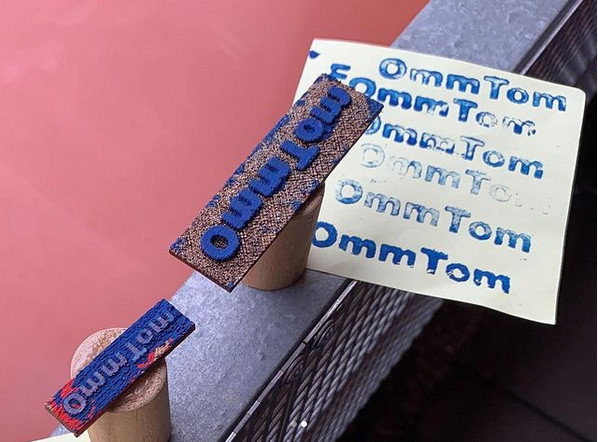 OmmTom
OmmTom
OmmTom
OmmTom
OmmTom
OmmTom
OmmTom
OmmTom